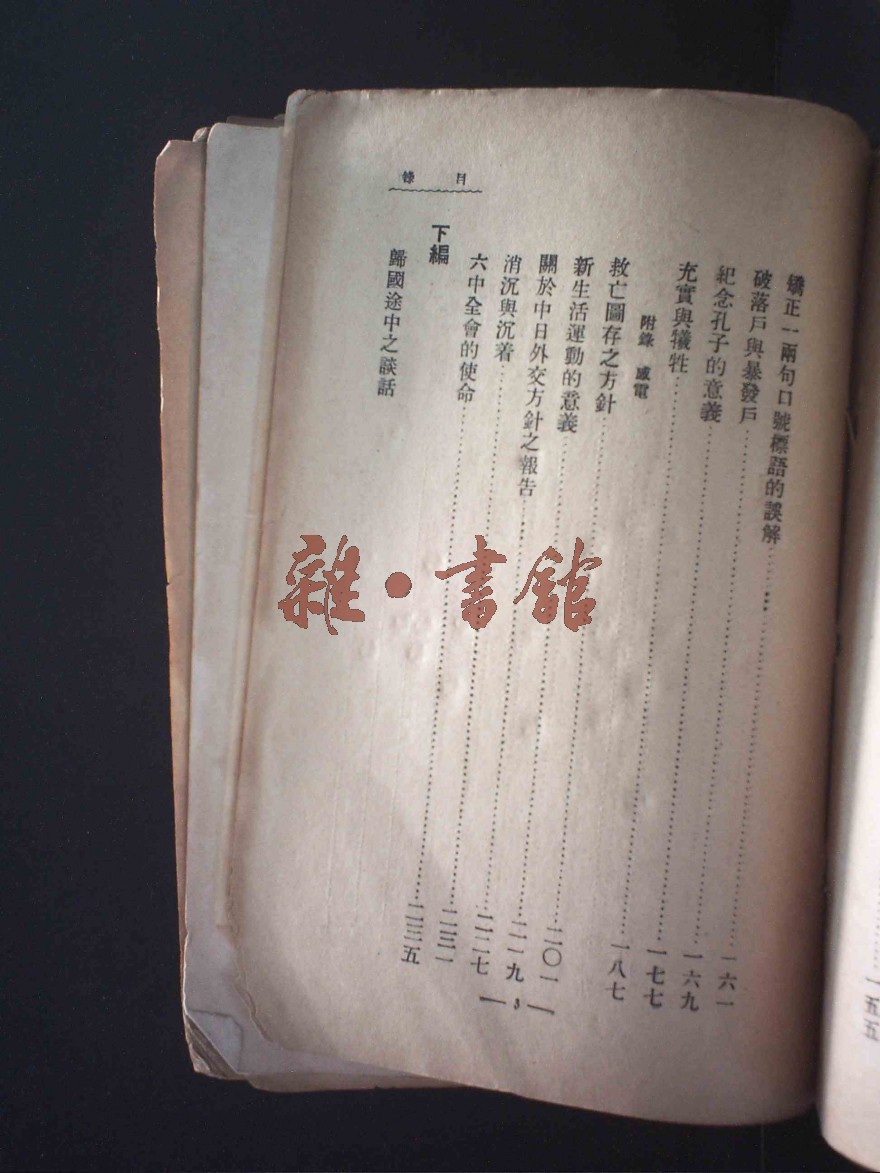 目錄
矯正一兩句口號標語的誤解……一六一
破落戶與暴發戶……一六九
紀念孔子的意義……一七七
充實與犧牲……一八七
附錄 感電
救亡圖存之方針……二〇一
新生活運動的意義……二一九
關於中日外交方針之報告……二二七
消沉與沉着……二三一
六中全會的使命……二三五
下編
歸國途中之談話
— 3 —
一五五
雜·書館